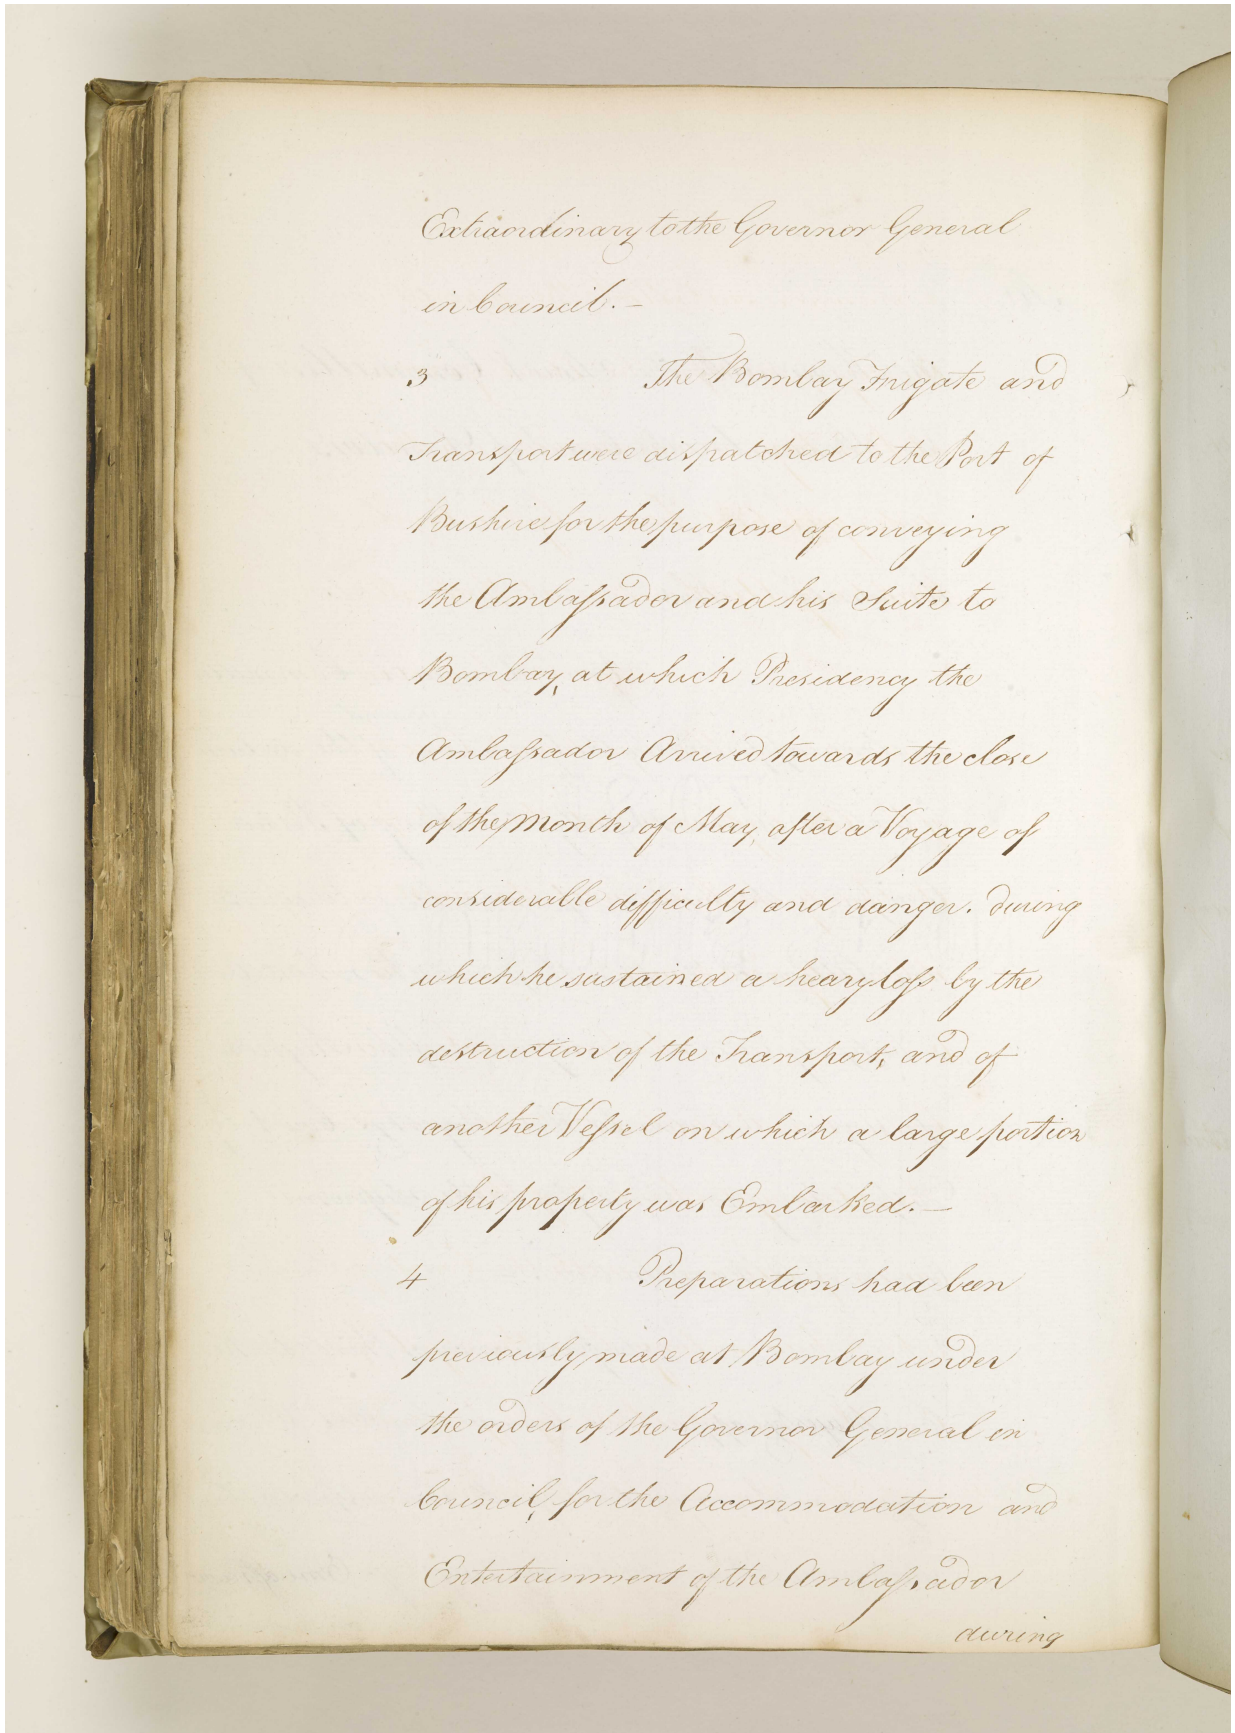 Extraordinary to the Governor General
in Council. —
3 The Bombay Frigate and
Transport were dispatched to the Port of
Bushire for the purpose of conveying
the Ambaſsador and his Suite to
Bombay, at which Presidency the
Ambaſsador Arrived towards the close
of the Month of May, after a Voyage of
considerable difficulty and danger. during
which he sustained a heavy loſs by the
destruction of the Transport, and of
another Veſsel on which a large portion
of his property was Embarked. —
4 Preparations had been
previously made at Bombay under
the orders of the Governor General in
Council, for the Accommodation and
Entertainment of the Ambaſsador
during